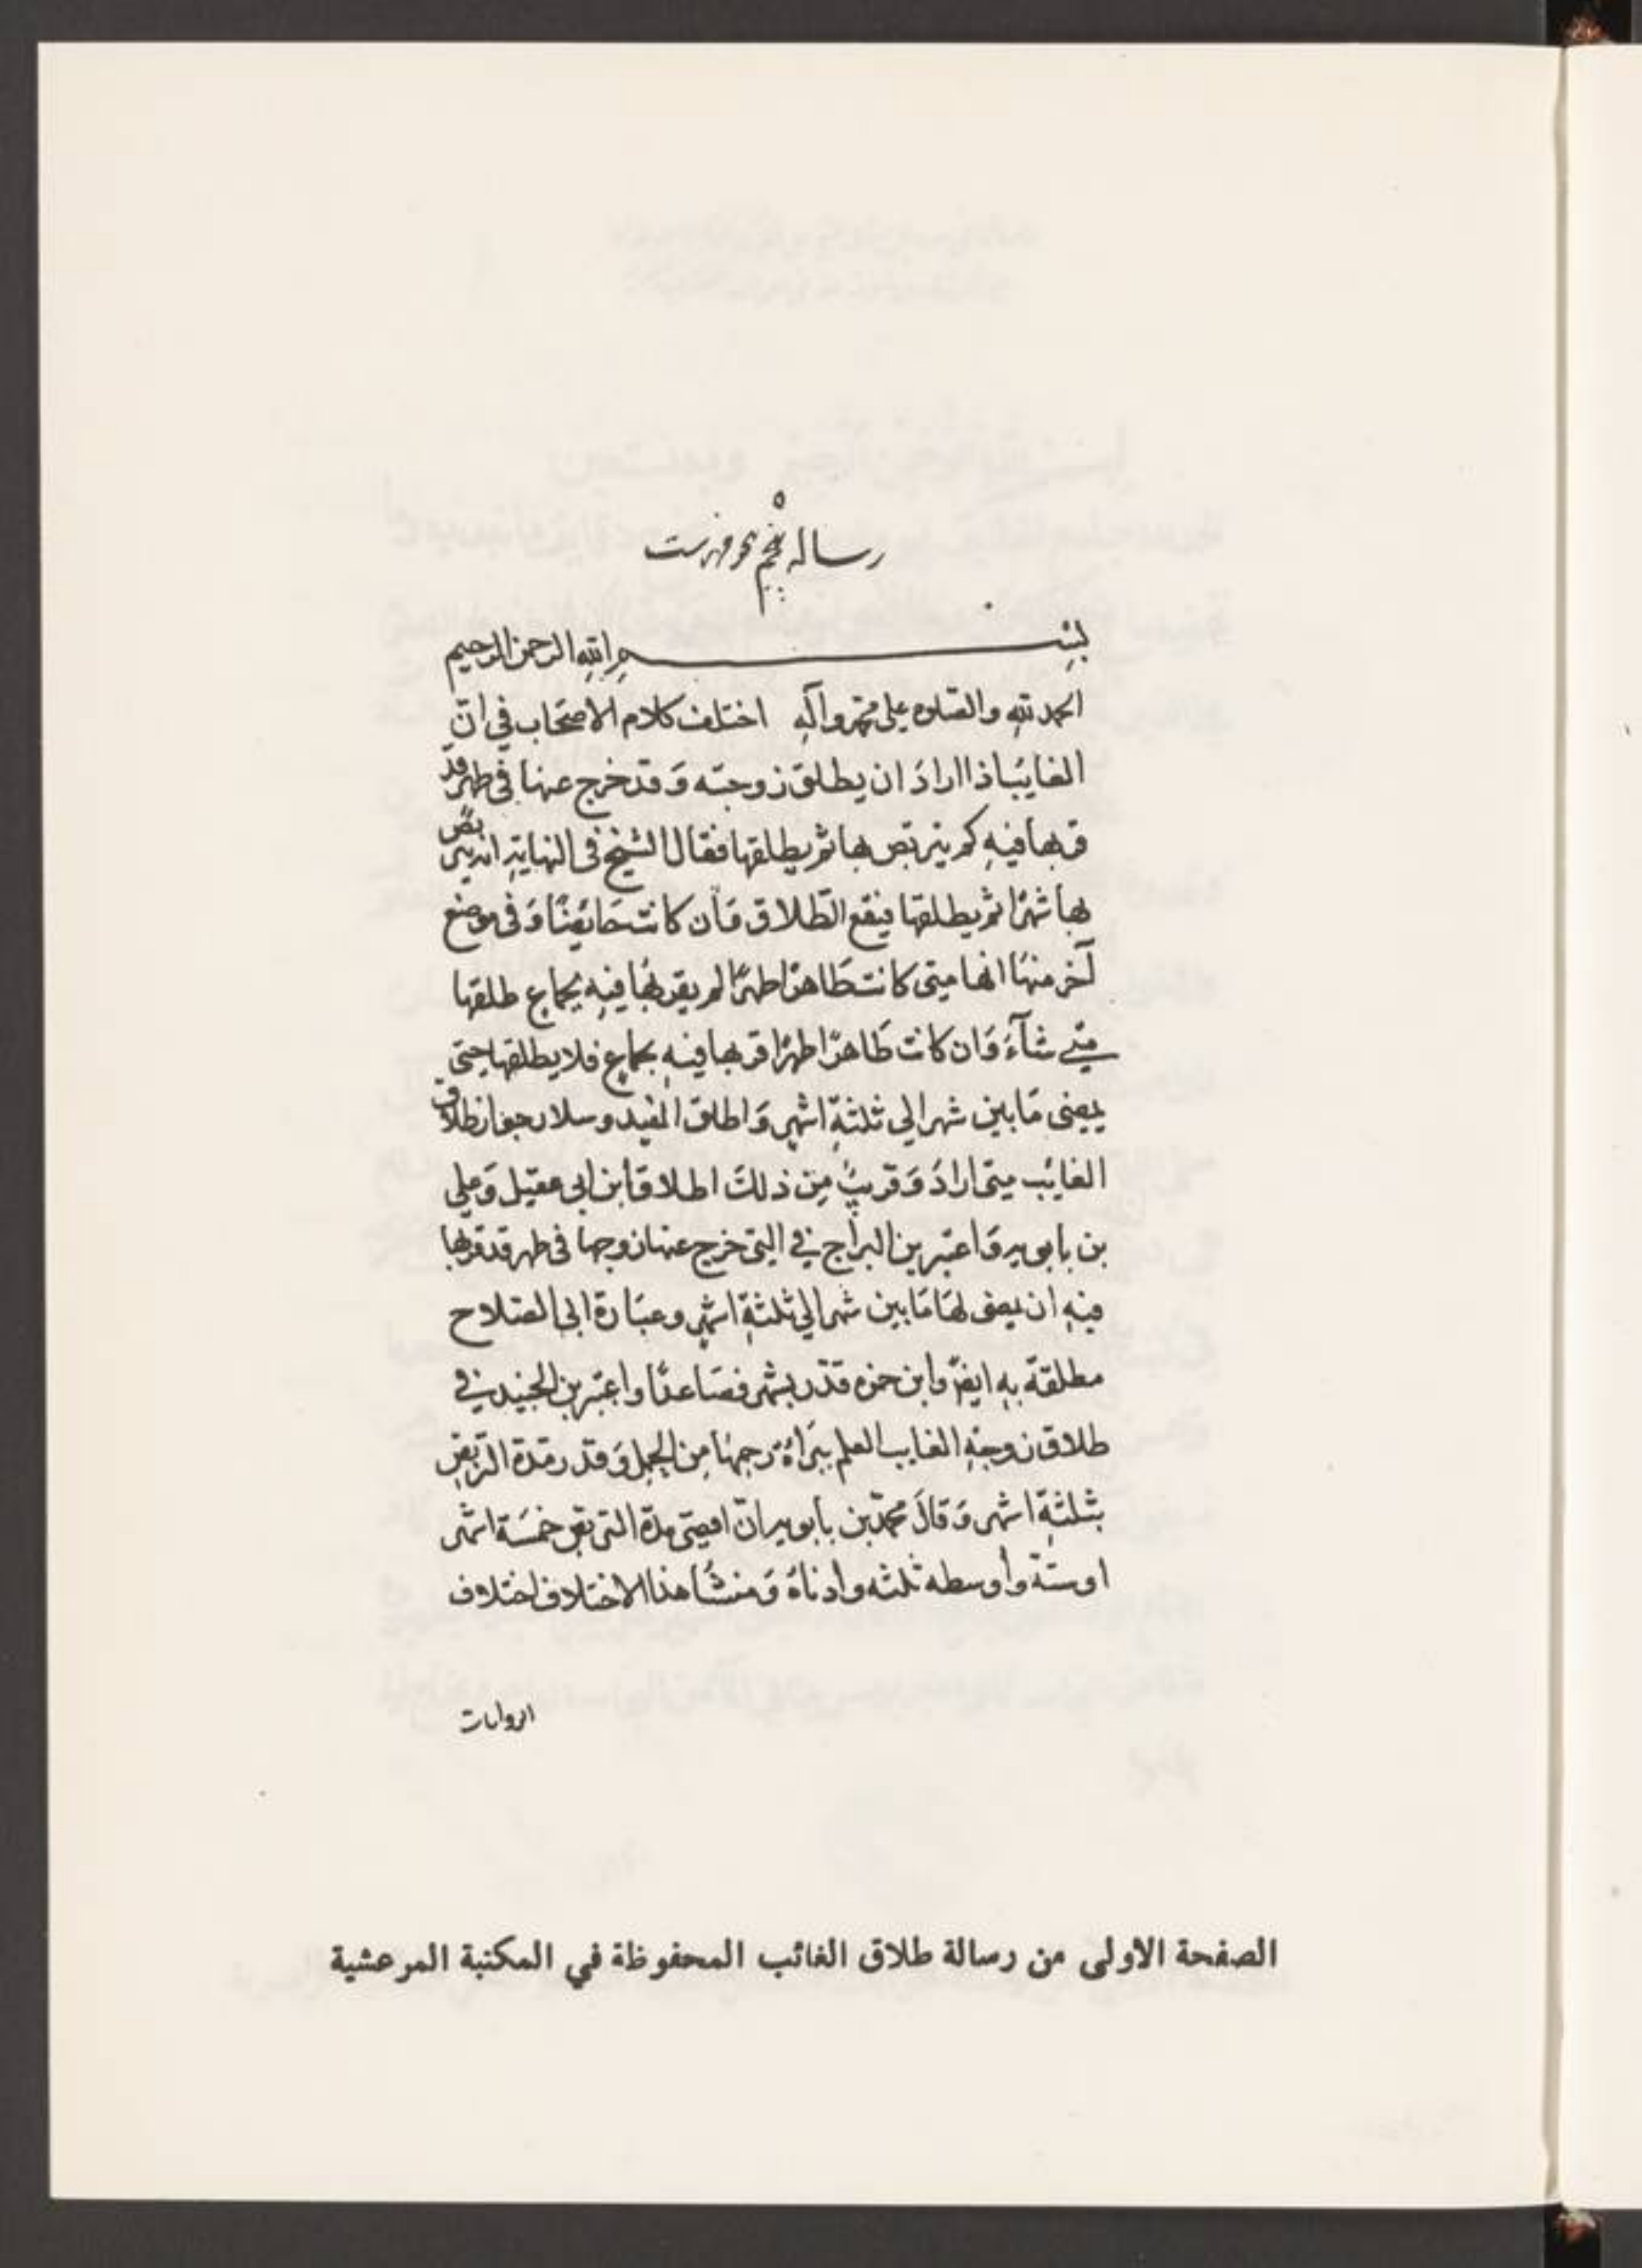 ۵
رساله پنجم
بسم الله الرحمن الرحيم
الحمد لله والصلوه على محمد وآله اختلف كلام الاصحاب في انّ
الغايب اذا اراد ان يطلق زوجته وَقد خرج عنها في طهر قد
قربها فيه كم يتربّص بها ثم يطلقها فقال الشيخ في النهاية انه يتربص
بها شهرًا ثم يطلقها فيقع الطّلاق وَان كانت حَائِضًا وَفي موضع
آخر منهَا انها متى كانت طَاهرًا طهرًا لم يقربهَا فيهِ بجماعٍ طلقها
متى شآءَ وَان كانت طَاهرًا طهرًا قربها فيهِ بجماعٍ فلا يطلقها حتى
يمضى مَا بين شهر الى ثلثةِ اشهر وَاطلق المفيد وسلار جواز طلاق
الغائب متى ارادَ وَقريبٌ مِن ذلكَ اطلاق ابن ابى عقيل وَعلى
بن بابويه وَاعتبر بن البراج في التى خرج عنها زوجها في طهر قد قربها
فيهِ ان يمضى لهَا مَا بين شهر الى ثلثةِ اشهر وعبَارة ابى الصلاح
مطلقة به ايضً وابن حمزه قدّر بشهر فصَاعدًا واعتبر بن الجنيد في
طلاق زوجة الغايب العلم ببرَاءةِ رحمهَا مِن الحمل وَقدّر مدّة التربّص
بثلثةِ اشهر وَقالَ محمّد بن بابويه انّ اقصى مدة التربّص خمسَة اشهر
او ستّة وأوسطه ثلثه وادناهُ وَمنشَأ هذا الاختلاف اختلاف
الروايات
الصفحة الاولى من رسالة طلاق الغائب المحفوظة في المكتبة المرعشية